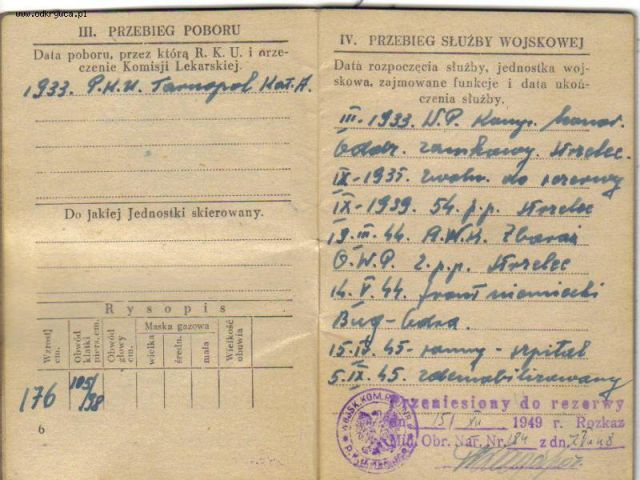 www.odkrywca.pl
III. PRZEBIEG POBORU
Data poboru, przez którą R. K. U. i orze-
czenie Komisji Lekarskiej.
1933. P.K.U. Tarnopol Kat. A.
Do jakiej Jednostki skierowany.
Rysopis
Wzrost cm.
Obwód klatki piers. cm.
Obwód głowy cm.
Maska gazowa
wielka
średn.
mała
Wielkość obuwia
176
105/98
6
IV. PRZEBIEG SŁUŻBY WOJSKOWEJ
Data rozpoczęcia służby, jednostka woj-
skowa, zajmowane funkcje i data ukoń-
czenia służby.
III. 1933. W.P. Komp.
Oddz. zamkowy. strzelec.
IX-1935. zwoln. do rezerwy
IX-1939. 54. p.p. strzelec
19. III. 44. Zbaraż
O.W.P. 2. p.p. strzelec
14. V. 44. front niemiecki
Bug-Odra.
15. IV. 45 - ranny - szpital
5. IX. 45. zdemobilizowany
Przeniesiony do rezerwy
dn. 15/ XII 1949 r. Rozkaz
Min. Obr. Nar. Nr. 184 z dn.